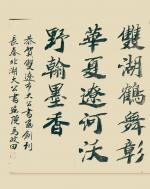 雙湖鶴舞彰
華夏遼河沃
野翰墨香
恭賀雙遼市大公書畫創刊
長春北湖大公書畫院馬政田